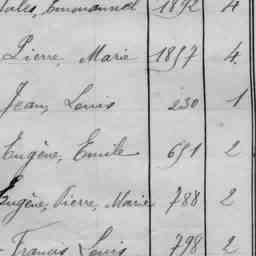 Jules, Emmanuel 1892 4
Pierre, Marie 1857 4
Jean, Louis 230 1
Eugène, Emile 651 2
Eugène, Pierre, Marie 788 2
Francis Louis 798 2